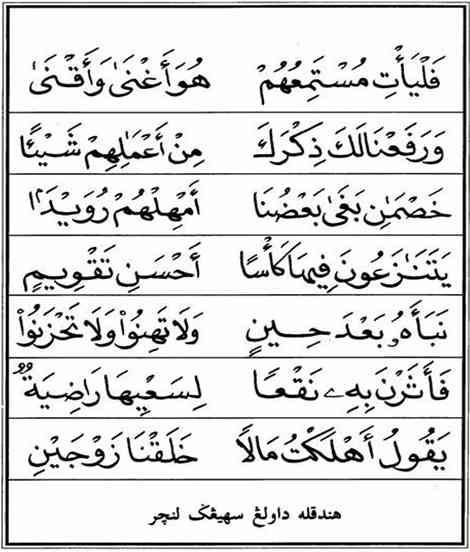 فَلْيَأْتِ مُسْتَمِعُهُمْ هُوَ أَغْنَىٰ وَأَقْنَىٰ
وَرَفَعْنَا لَكَ ذِكْرَكَ مِنْ أَعْمَٰلِهِمْ شَيْـًٔا
خَصْمَٰنِ بَغَىٰ بَعْضُنَا أَمْهِلْهُمْ رُوَيْدًۢا
يَتَنَٰزَعُونَ فِيهَا كَأْسًا أَحْسَنِ تَقْوِيمٍ
نَبَأَهُۥ بَعْدَ حِينٍ وَلَا تَهِنُوا۟ وَلَا تَحْزَنُوا۟
فَأَثَرْنَ بِهِۦ نَقْعًا لِسَعْيِهَا رَاضِيَةٌ
يَقُولُ أَهْلَكْتُ مَالًا خَلَقْنَا زَوْجَيْنِ
هندقله داولڠ سهيڠݢ لنچر